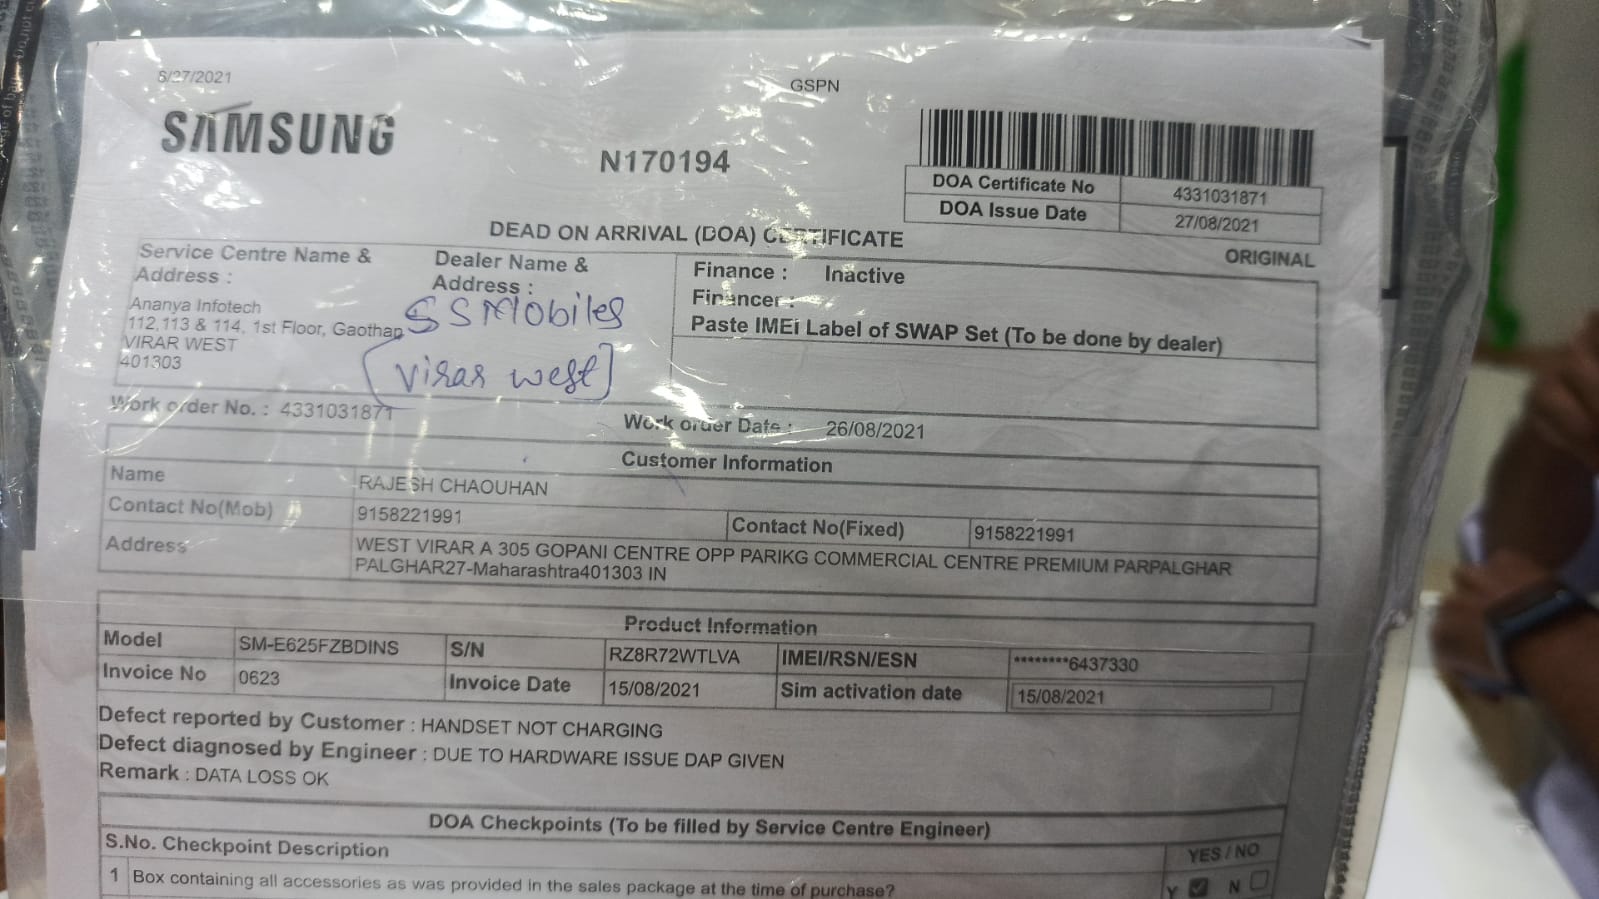 8/27/2021
GSPN
SAMSUNG
N170194
DOA Certificate No 4331031871
DOA Issue Date 27/08/2021
DEAD ON ARRIVAL (DOA) CERTIFICATE
ORIGINAL
Service Centre Name &
Address :
Ananya Infotech
112,113 & 114, 1st Floor, Gaothan
VIRAR WEST
401303
Dealer Name &
Address :
SS Mobiles
[Virar west]
Finance : Inactive
Financer :
Paste IMEi Label of SWAP Set (To be done by dealer)
Work order No. : 4331031871
Work order Date : 26/08/2021
Customer Information
Name RAJESH CHAOUHAN
Contact No(Mob) 9158221991 Contact No(Fixed) 9158221991
Address WEST VIRAR A 305 GOPANI CENTRE OPP PARIKG COMMERCIAL CENTRE PREMIUM PARPALGHAR
PALGHAR27-Maharashtra401303 IN
Product Information
Model SM-E625FZBDINS S/N RZ8R72WTLVA IMEI/RSN/ESN ********6437330
Invoice No 0623 Invoice Date 15/08/2021 Sim activation date 15/08/2021
Defect reported by Customer : HANDSET NOT CHARGING
Defect diagnosed by Engineer : DUE TO HARDWARE ISSUE DAP GIVEN
Remark : DATA LOSS OK
DOA Checkpoints (To be filled by Service Centre Engineer)
S.No. Checkpoint Description YES / NO
1 Box containing all accessories as was provided in the sales package at the time of purchase? Y N